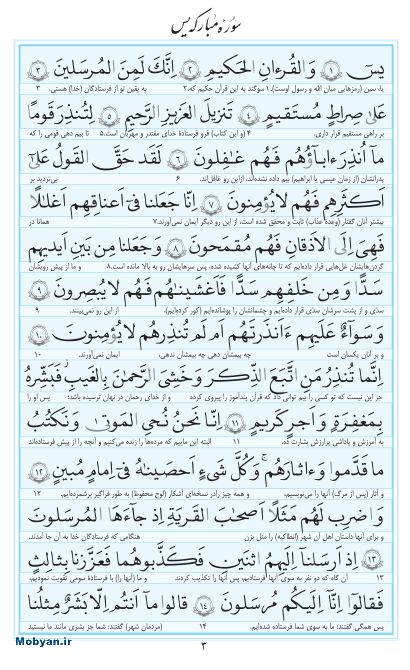 سوره مبارکه یس
يسٓ ۱ وَالْقُرْءَانِ الْحَكيمِ ۲ اِنَّكَ لَمِنَ الْمُرْسَلينَ ۳
یا، سین (رمزهایی میان الله و رسول اوست).۱ سوگند به این قرآن حکیم که،۲ به یقین تو از فرستادگان (خدا) هستی. ۳
عَلىٰ صِراطٍ مُسْتَقيمٍ ۴ تَنْزيلَ الْعَزيزِ الرَّحيمِ ۵ لِتُنْذِرَ قَوْمًا
بر راهی مستقیم قرار داری. ۴ (و این کتاب) فرو فرستادهٔ خدای مقتدر و مهربان است.۵ تا بیم دهی قومی را که
مآ اُنْذِرَ ءابآؤُهُمْ فَهُمْ غٰفِلُونَ ۶ لَقَدْ حَقَّ الْقَوْلُ عَلىٰٓ
پدرانشان (از زمان عیسی یا ابراهیم) بیم داده نشده‌اند، ازاین رو غافل‌اند. ۶ بی‌تردید بر
اَكْثَرِهِمْ فَهُمْ لايُؤْمِنُونَ ۷ اِنّا جَعَلْنا فىٓ اَعْناقِهِمْ اَغْلٰلًا
بیشتر آنان گفتار (وعدهٔ عذاب) ثابت و محقق شده است، از این رو دیگر ایمان نمی‌آورند.۷ همانا در
فَهِىَ اِلَى الْاَذْقانِ فَهُمْ مُقْمَحُونَ ۸ وَ جَعَلْنا مِنْ بَيْنِ اَيْديهِمْ
گردن‌هایشان غل‌هایی قرار داده‌ایم که تا چانه‌های آنها کشیده شده، پس سرهایشان رو به بالا مانده است.۸ و ما از پیش رویشان
سَدًّا وَ مِنْ خَلْفِهِمْ سَدًّا فَاَغْشَيْنٰهُمْ فَهُمْ لايُبْصِرُونَ ۹
سدی و از پشت سرشان سدی قرار داده‌ایم و چشمانشان را پوشانده‌ایم (کور کرده‌ایم)، از این رو نمی‌بینند. ۹
وَ سَوآءٌ عَلَيْهِمْ ءَاَنْذَرْتَهُمْ اَمْ لَمْ تُنْذِرْهُمْ لايُؤْمِنُونَ ۱۰
و بر آنان یکسان است چه بیمشان دهی چه بیمشان ندهی، ایمان نمی‌آورند. ۱۰
اِنَّما تُنْذِرُ مَنِ اتَّبَعَ الذِّكْرَ وَ خَشِىَ الرَّحْمٰنَ بِالْغَيْبِ فَبَشِّرْهُ
جز این نیست که تو کسی را بیم توانی داد که قرآن پندآموز را پیروی کرده و از خدای رحمان در نهان ترسیده باشد؛ پس او را
بِمَغْفِرَةٍ وَ اَجْرٍ كَريمٍ ۱۱ اِنّا نَحْنُ نُحْىِ الْمَوْتىٰ وَ نَكْتُبُ
به آمرزش و پاداشی پرارزش بشارت ده. ۱۱ البته این ماییم که مرده‌ها را زنده می‌کنیم و آنچه را از پیش فرستاده‌اند
ما قَدَّمُوا وَ ءاثارَهُمْ وَ كُلَّ شَىْءٍ اَحْصَيْنٰهُ فىٓ اِمامٍ مُبينٍ ۱۲
و آثار (پس از مرگ) آنها را می‌نویسیم، و همه چیز رادر نسخه‌ای آشکار (لوح محفوظ) به طور فراگیر برشمرده‌ایم. ۱۲
وَ اضْرِبْ لَهُمْ مَثَلًا اَصْحٰبَ الْقَرْيَةِ اِذْ جآءَهَا الْمُرْسَلُونَ
و برای آنها داستان اهل آن شهر (انطاکیه) را مثل بزن هنگامی که فرستادگان خدا به آن جا آمدند.
۱۳ اِذْ اَرْسَلْنآ اِلَيْهِمُ اثْنَيْنِ فَكَذَّبُوهُما فَعَزَّزْنا بِثالِثٍ
۱۳ آن گاه که دو نفر به سوی آنها فرستادیم، پس آنها را تکذیب کردند و ما (آنها را) با فرستادهٔ سومی تقویت نمودیم،
فَقالُوٓا اِنّآ اِلَيْكُمْ مُرْسَلُونَ ۱۴ قالُوا مآ اَنْتُمْ اِلّا بَشَرٌ مِثْلُنا
پس همگی گفتند: ما به سوی شما فرستاده شده‌ایم. ۱۴ (مردمان شهر) گفتند: شما جز بشری مانند ما نیستید
Mobyan.ir
۳